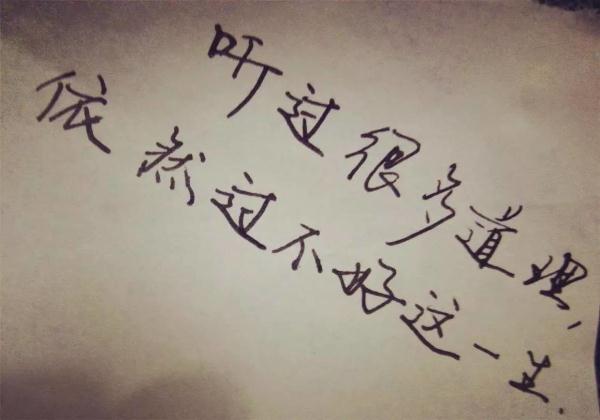 听过很多道理、
依然过不好这一生.